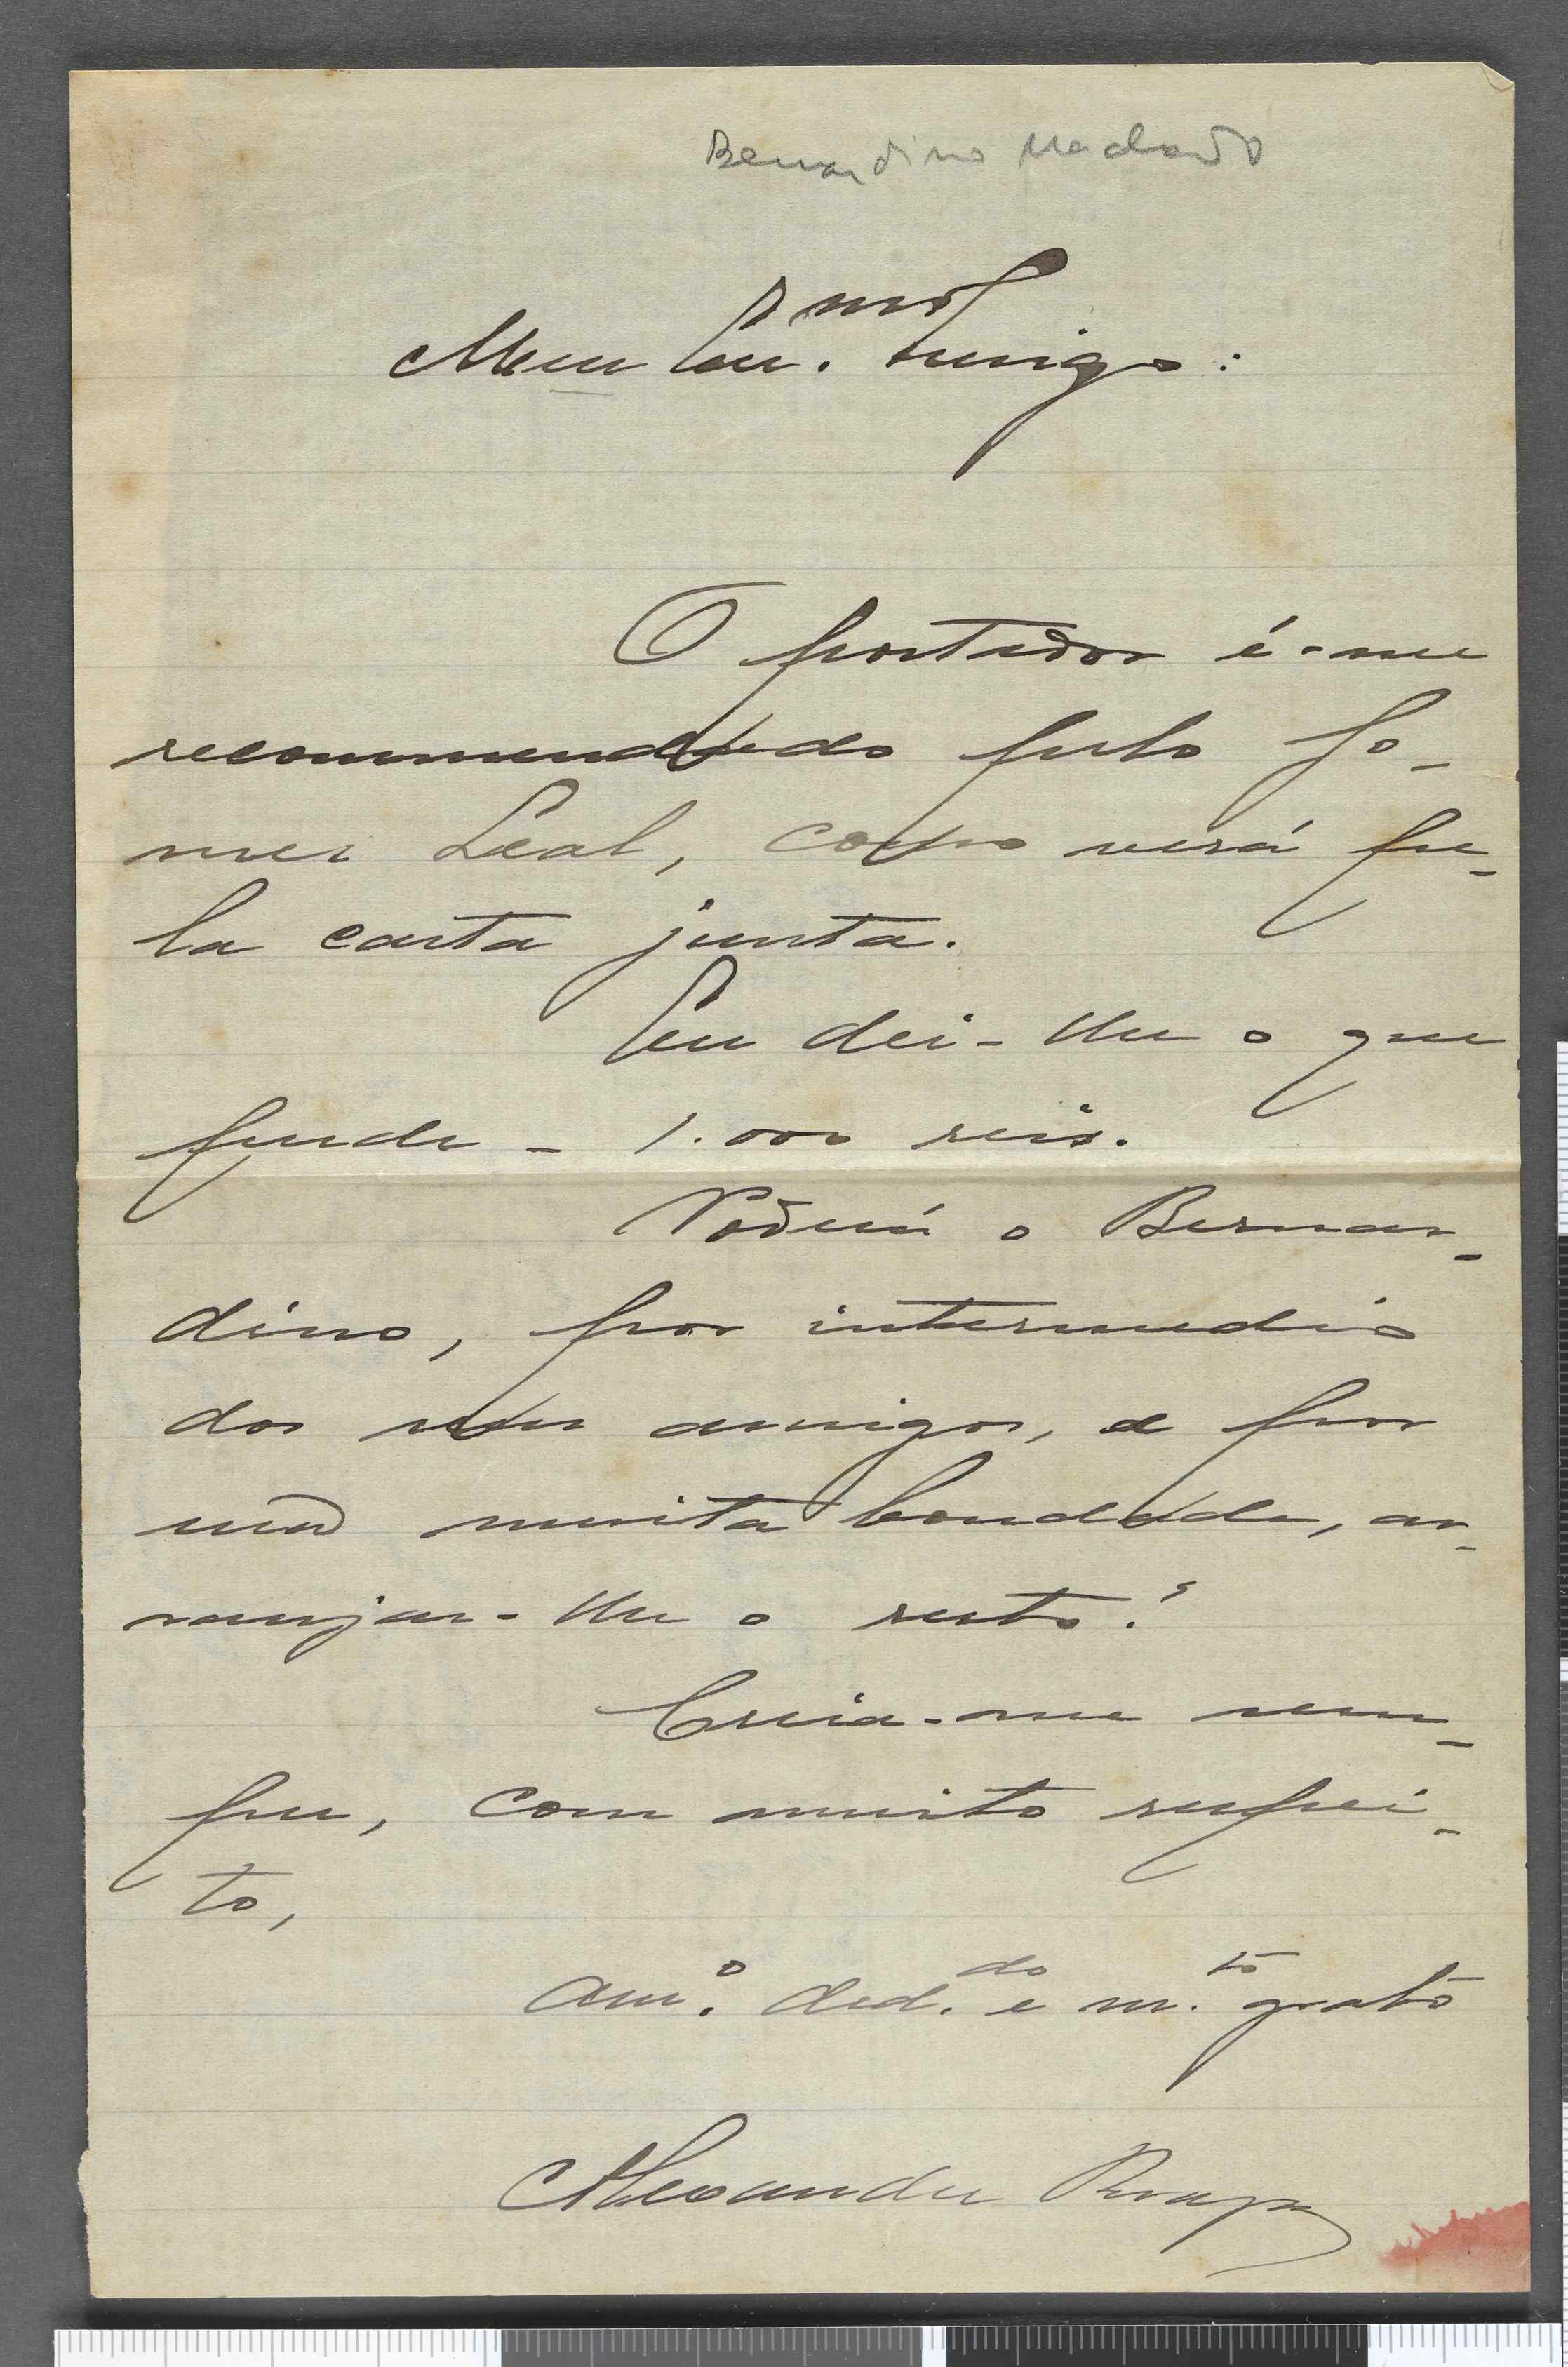 Bernardino Machado
Meu Ex.mo amigo:
O portador é-me
recommendado pelo Go-
mes Leal, como verá pe-
la carta junta.
Eu dei-lhe o que
pude - 1.000 reis.
Poderá o Bernar-
dino, por intermedio
dos seus amigos, e por
sua muita bondade, ar-
ranjar-lhe o resto?
Creia-me sem-
pre, com muito respei-
to,
Am.o ded.do e m.to grato
Alexandre Braga